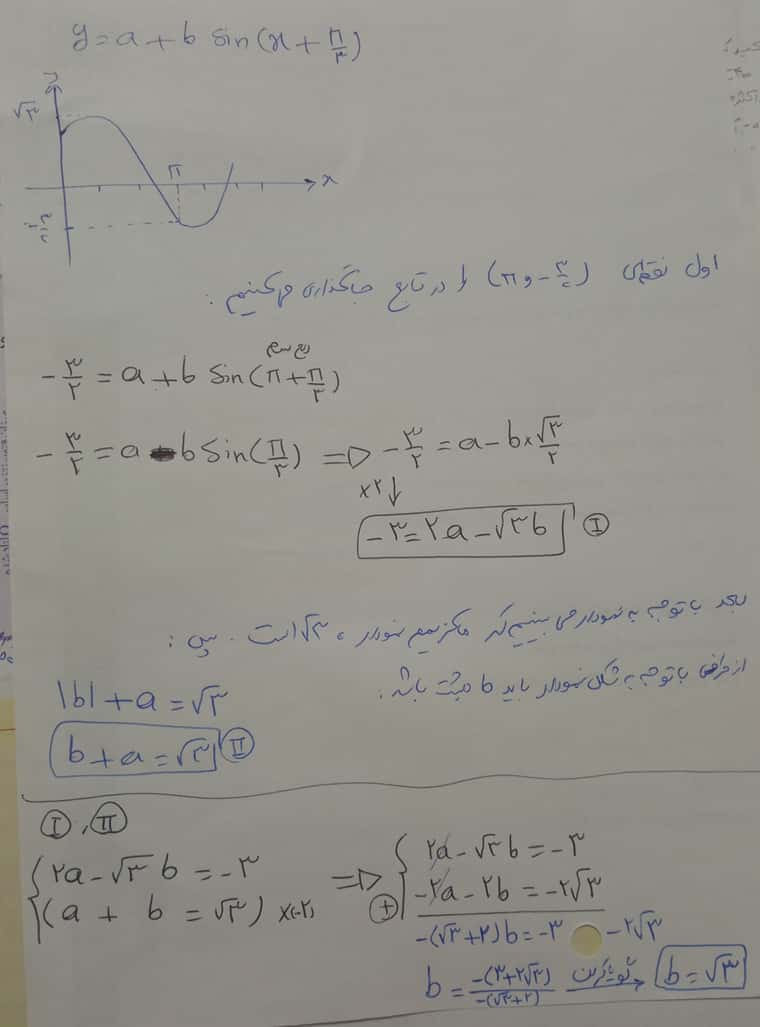 y = a + b sin(x + π/۳)
y
√۳
π
x
-۳/۲
اول نقطه‌ی (π و -۳/۲) را در تابع جاگذاری می‌کنیم:
ربع سوم
-۳/۲ = a + b sin(π + π/۳)
-۳/۲ = a - b sin(π/۳) ⇒ -۳/۲ = a - b × √۳/۲
×۲ ↓
-۳ = ۲a - √۳b Ⅰ
بعد با توجه به نمودار می‌بینیم که ماکزیمم نمودار، √۳ است. پس:
از طرفی با توجه به شکل نمودار باید b مثبت باشد.
|b| + a = √۳
b + a = √۳ Ⅱ
Ⅰ, Ⅱ
{ ۲a - √۳ b = -۳ ⇒ { ۲a - √۳ b = -۳
(a + b = √۳) ×(-۲) + -۲a - ۲b = -۲√۳
-(√۳ + ۲)b = -۳ - ۲√۳
b = -(۳+۲√۳)/-(√۳+۲) گویا کردن → b = √۳